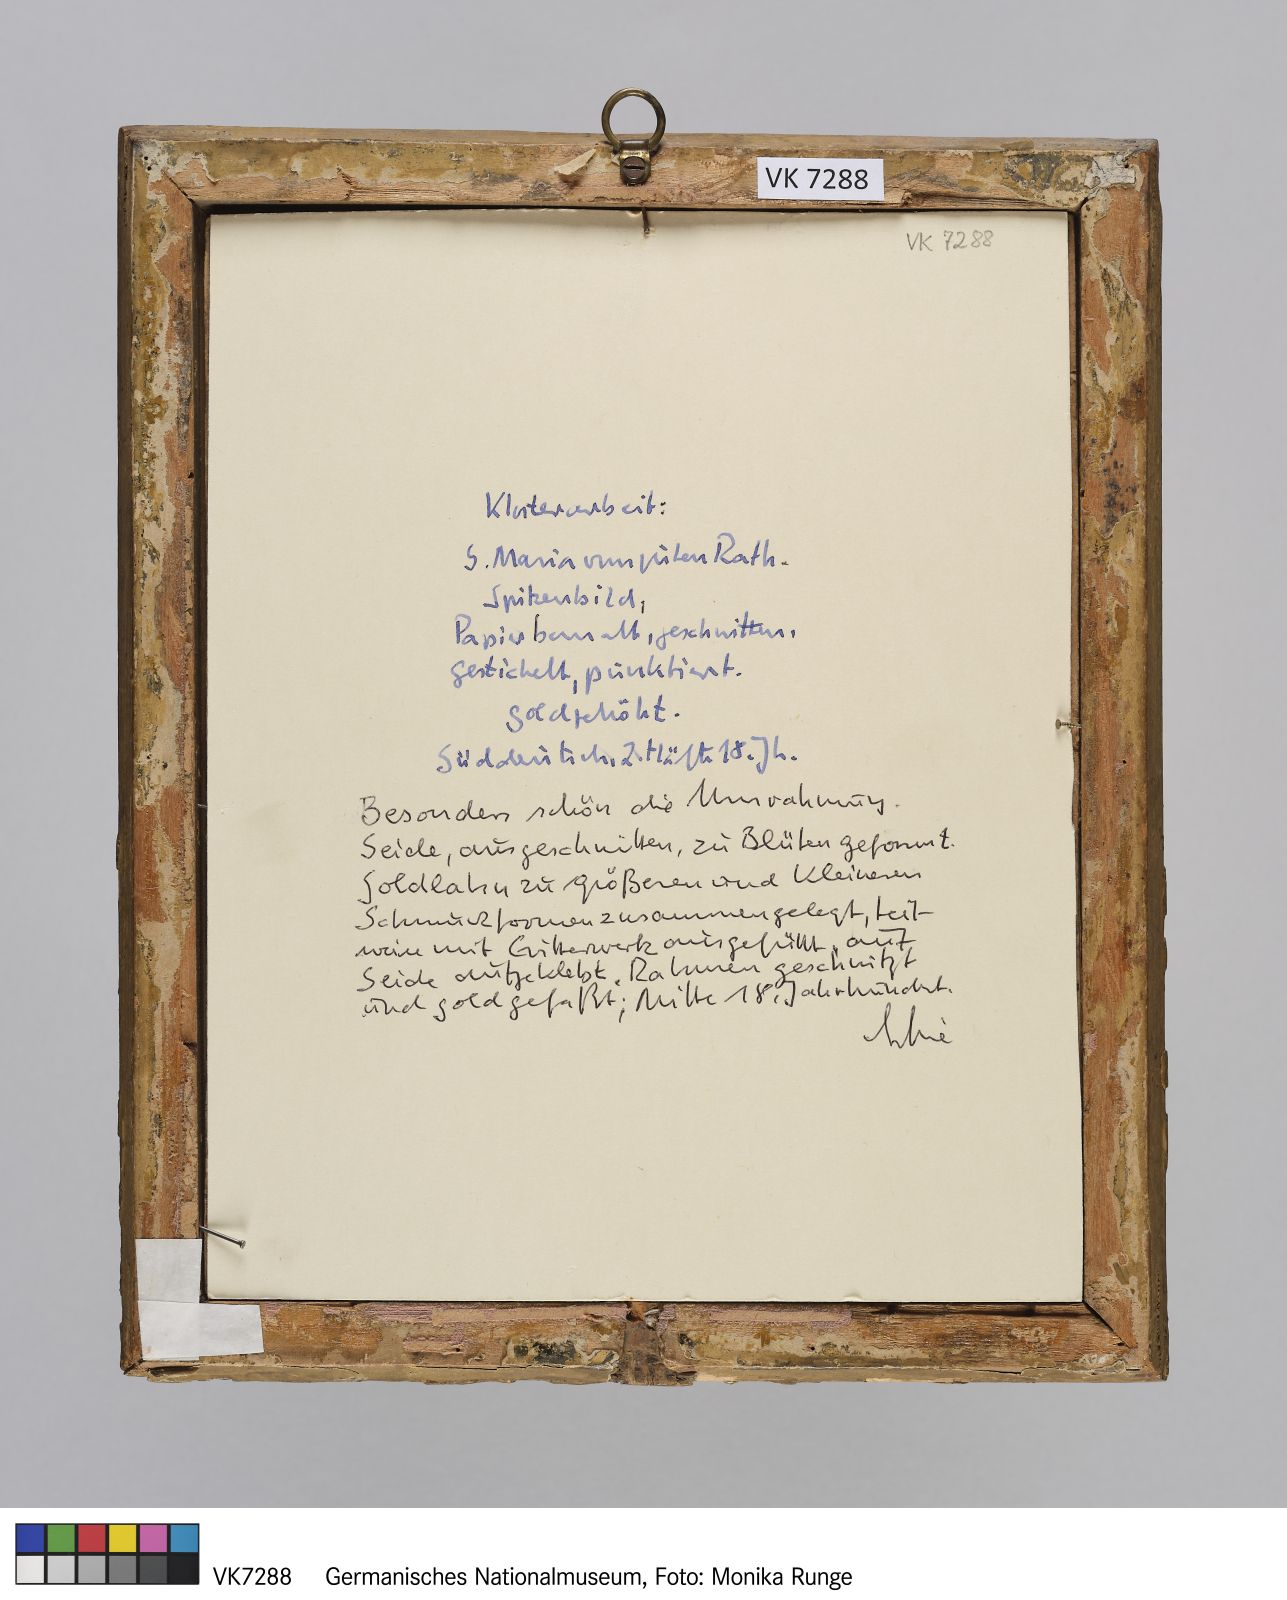 VK 7288
VK 7288
Klosterarbeit:
S. Maria vom guten Rath.
Spitzenbild,
Papier bemalt, geschnitten,
gestichelt, punktiert.
goldgehöht.
Süddeutsch, 2. Hälfte 18. Jh.
Besonders schön die Umrahmung.
Seide, ausgeschnitten, zu Blüten geformt.
Goldlahn zu größeren und kleineren
Schmuckformen zusammengelegt, teil-
weise mit Gitterwerk ausgefüllt, auf
Seide aufgeklebt. Rahmen geschnitzt
und goldgefaßt; Mitte 18. Jahrhundert.
VK7288 Germanisches Nationalmuseum, Foto: Monika Runge